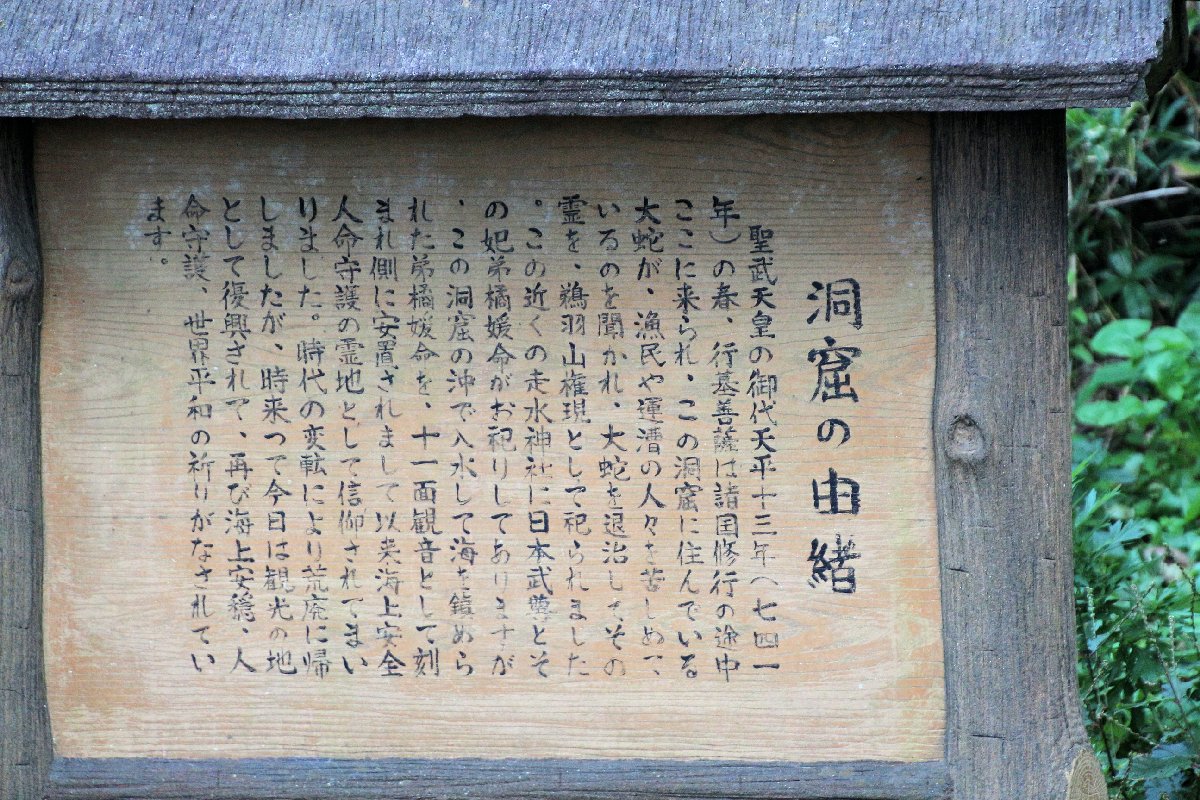 洞窟の由緒
聖武天皇の御代天平十三年（七四一
年）の春、行基菩薩は諸国修行の途中
ここに来られ、この洞窟に住んでいる
大蛇が、漁民や運漕の人々を苦しめて、
いるのを聞かれ、大蛇を退治してその
霊を、鵜羽山権現として祀られました
。この近くの走水神社に日本武尊とそ
の妃弟橘媛命がお祀りしてありますが
、この洞窟の沖で入水して海を鎮めら
れた弟橘媛命を、十一面観音として刻
まれ側に安置されまして以来海上安全
人命守護の霊地として信仰されてまい
りました。時代の変転により荒廃に帰
しましたが、時来つて今日は観光の地
として復興されて、再び海上安穏、人
命守護、世界平和の祈りがなされてい
ます。